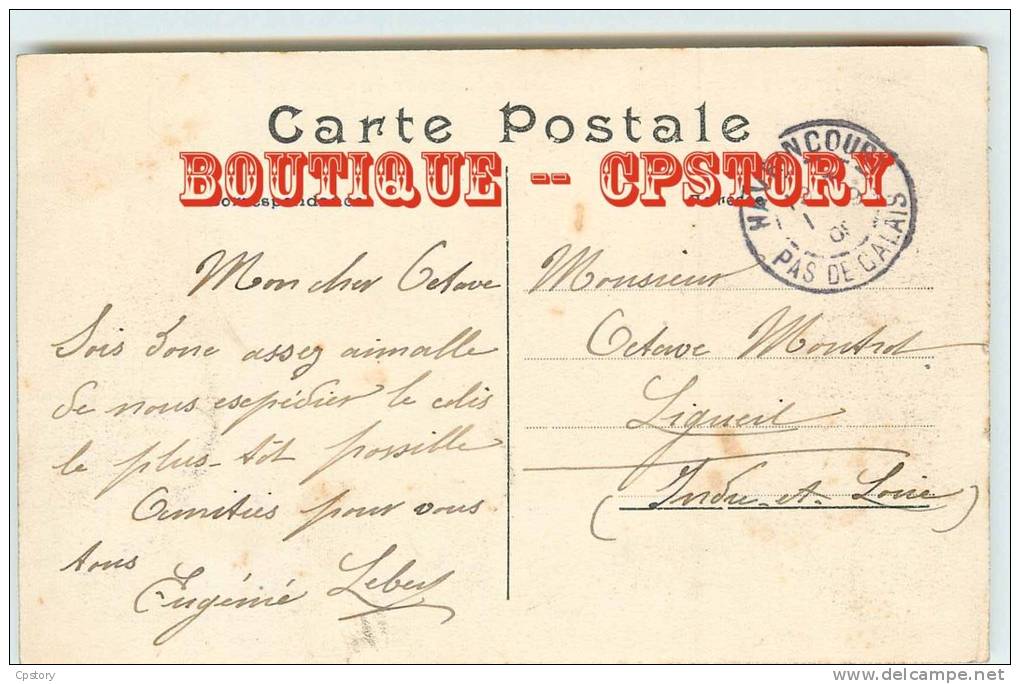 Carte Postale
BOUTIQUE -- CPSTORY
Correspondance
HAVRINCOURT
PAS DE CALAIS
Mon cher Octave
Sois donc assez aimalle
de nous expédier le colis
le plus-tôt possible
Amitiés pour vous
tous
Eugénie
Monsieur
Octave
Ligueil
(Indre-et-Loire)
Cpstory
delcampe.net